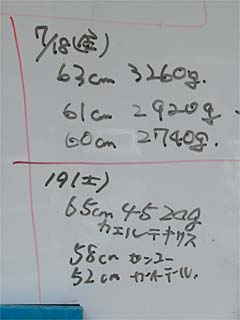 7/18(金)
63cm 3260g.
61cm 2920g.
60cm 2740g.
19(土)
65cm 4520g
カエルテキサス
58cm センコー
52cm カットテール.